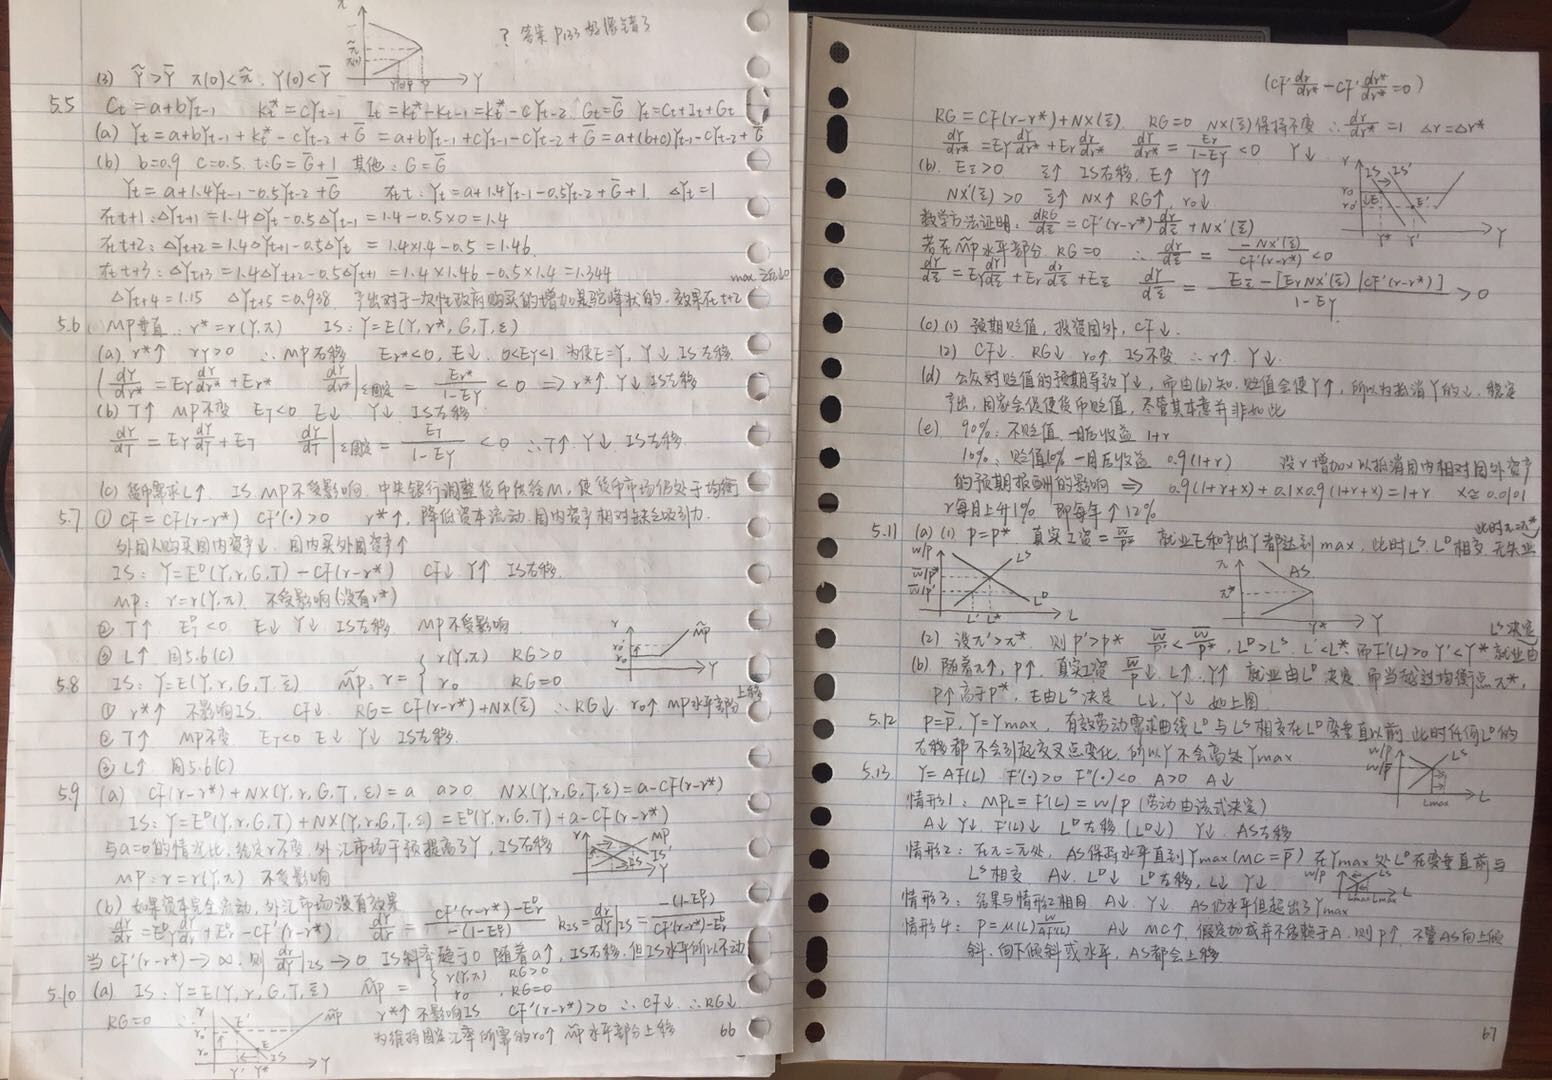 ? 答案 P133 好像错了
π
Y
(3) Ỹ>Ȳ π(0)<π̃. Y(0)<Ȳ
5.5 Ct=a+bYt-1 Kt*=cYt-1 It=Kt*-Kt-1=Kt*-cYt-2 Gt=Ḡ Yt=Ct+It+Gt
(a) Yt=a+bYt-1+Kt*-cYt-2+Ḡ=a+bYt-1+cYt-1-cYt-2+Ḡ=a+(b+c)Yt-1-cYt-2+Ḡ
(b) b=0.9 c=0.5. t:G=Ḡ+1 其他:G=Ḡ
Yt=a+1.4Yt-1-0.5Yt-2+Ḡ 在t:Yt=a+1.4Yt-1-0.5Yt-2+Ḡ+1. △Yt=1
在t+1:△Yt+1=1.4△Yt-0.5△Yt-1=1.4-0.5×0=1.4
在t+2:△Yt+2=1.4△Yt+1-0.5△Yt=1.4×1.4-0.5=1.46.
在t+3:△Yt+3=1.4△Yt+2-0.5△Yt+1=1.4×1.46-0.5×1.4=1.344
△Yt+4=1.15 △Yt+5=0.938 产出对于一次性政府购买的增加是驼峰状的.效果在t+2 max
5.6 MP垂直∴r*=r(Y,π) IS:Y=E(Y,r*,G,T,ε)
(a) r*↑ rY>0 ∴MP右移 Er*<0, E↓. 0<EY<1 为使E=Y, Y↓ IS左移
(dY/dr*=EY dY/dr*+Er* dY/dr*|ε固定=Er*/(1-EY)<0 ⇒r*↑ Y↓ IS左移
(b) T↑ MP不变 ET<0 E↓ Y↓ IS左移
dY/dT=EY dY/dT+ET dY/dT|ε固定=ET/(1-EY)<0 ∴T↑ Y↓ IS左移
(c) 货币需求L↑ IS MP不受影响. 中央银行调整货币供给M, 使货币市场仍处于均衡
5.7 ① CF=CF(r-r*) CF'(·)>0 r*↑, 降低资本流动.国内资产相对缺乏吸引力.
外国人购买国内资产↓ 国内买外国资产↑
IS: Y=E^D(Y,r,G,T)-CF(r-r*) CF↓ Y↑ IS右移.
MP: r=r(Y,π) 不受影响(没有r*)
② T↑ E^D_T<0 E↓ Y↓ IS左移 MP不受影响
③ L↑ 同5.6(c)
r
r0'
r0
M̃P
Y
5.8 IS: Y=E(Y,r,G,T,ε̄) M̃P: r={ r(Y,π) RG>0
r0 RG=0
① r*↑ 不影响IS CF↓ RG=CF(r-r*)+NX(ε̄) ∴RG↓ r0↑ MP水平部分上移
② T↑ MP不变 ET<0 E↓ Y↓ IS左移
③ L↑ 同5.6(c)
5.9 (a) CF(r-r*)+NX(Y,r,G,T,ε)=a a>0 NX(Y,r,G,T,ε)=a-CF(r-r*)
IS:Y=E^D(Y,r,G,T)+NX(Y,r,G,T,ε)=E^D(Y,r,G,T)+a-CF(r-r*)
与a=0的情况比, 给定r不变, 外汇市场干预提高了Y, IS右移
MP: r=r(Y,π) 不受影响
r
MP
IS'
IS
Y
(b) 如果资本完全流动, 外汇市场没有效果
dY/dr=E^D_Y dY/dr+E^D_r-CF'(r-r*) dY/dr=(CF'(r-r*)-E^D_r)/(-(1-E^D_Y)) kIS=dr/dY|IS=-(1-E^D_Y)/(CF'(r-r*)-E^D_r)
当CF'(r-r*)→∞ 则 dr/dY|IS→0 IS斜率趋于0 随着a↑, IS右移.但IS水平所以不动
5.10 (a) IS:Y=E(Y,r,G,T,ε̄) M̃P={ r(Y,π) RG>0
r0 RG=0
RG=0 r*↑ 不影响IS CF'(r-r*)>0 ∴CF↓ ∴RG↓
为维持固定汇率所需的r0↑ M̃P水平部分上移
r
r0'
r0
E'
E
M̃P
IS
Y' Y*
Y
66
(CF' dr/dr*-CF' dr*/dr*=0)
RG=CF(r-r*)+NX(ε̄) RG=0 NX(ε̄)保持不变 ∴dr/dr*=1 △r=△r*
dY/dr*=EY dY/dr*+Er dr/dr* dY/dr*=Er/(1-EY)<0 Y↓
(b). Eε̄>0 ε̄↑ IS右移. E↑ Y↑
NX'(ε̄)>0 ε̄↑ NX↑ RG↑, r0↓
r
r0
r0'
IS IS'
E
E'
Y* Y'
Y
数学方法证明: dRG/dε̄=CF'(r-r*)dr/dε̄+NX'(ε̄)
若在M̃P水平部分 RG=0 ∴dr/dε̄=-NX'(ε̄)/CF'(r-r*)<0
dY/dε̄=EY dY/dε̄+Er dr/dε̄+Eε̄ dY/dε̄=(Eε̄-[ErNX'(ε̄)/CF'(r-r*)])/(1-EY)>0
(c) (1) 预期贬值, 投资国外, CF↓.
(2) CF↓ RG↓ r0↑ IS不变 ∴r↑ Y↓
(d) 公众对贬值的预期导致Y↓, 而由(b)知.贬值会使Y↑, 所以为抵消Y的↓, 稳定
产出, 国家会促使货币贬值, 尽管其本意并非如此
(e) 90%:不贬值 一月后收益 1+r
10%:贬值10% 一月后收益 0.9(1+r) 设r增加x以抵消国内相对国外资产
的预期报酬的影响 ⇒ 0.9(1+r+x)+0.1×0.9(1+r+x)=1+r x≈0.0101
r每月上升1% 即每年↑12%
5.11 (a) (1) P=P* 真实工资=w̄/P* 就业L和产出Y都达到max, 此时L^S L^D相交 无失业 此时π=π*
w/P
w̄/P*
w̄/P'
L^S
L^D
L' L*
L
π
π*
AS
Y*
Y
(2) 设π'>π* 则P'>P* w̄/P'<w̄/P*, L^D>L^S L'<L*.而F'(L)>0 Y'<Y* 就业由L^S决定
(b) 随着π↑, P↑. 真实工资w̄/P↓ L↑. Y↑ 就业由L^D决定 而当超过均衡点π*,
P↑高于P*, L由L^S决定 L↓, Y↓ 如上图.
5.12 P=P̄, Y=Ymax, 有效劳动需求曲线L^D与L^S相交在L^D变垂直以前.此时任何L^D的
右移都不会引起交叉点变化, 所以Y不会高处Ymax
w/P
w/P̄
L^S
Lmax
L
5.13 Y=AF(L) F'(·)>0 F''(·)<0 A>0 A↓
情形1: MPL=F'(L)=w/P (劳动由该式决定)
A↓ Y↓ F'(L)↓ L^D左移(L^D↓) Y↓ AS左移
情形2: 在π=π̄处, AS保持水平直到Ymax(MC=P̄) 在Ymax处L^D在变垂直前与
L^S相交 A↓ L^D↓ L^D左移, L↓ Y↓
w/P
LS
Lmax Lmax
L
情形3: 结果与情形2相同 A↓ Y↓ AS仍水平但超出了Ymax
情形4: P=μ(L) w/AF'(L) A↓ MC↑, 假定加成并不依赖于A, 则P↑ 不管AS向上倾
斜.向下倾斜或水平, AS都会上移
67